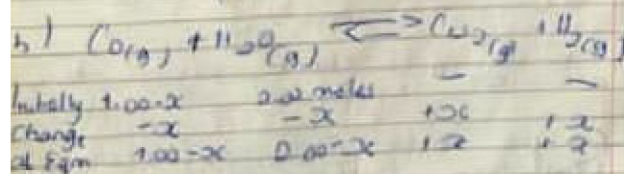 b) CO(g) + H2O(g) ⇌ CO2(g) + H2(g)
Initially 1.00-x 2.00 moles - -
Change -x -x +x +x
at Eqm 1.00-x 2.00-x +x +x